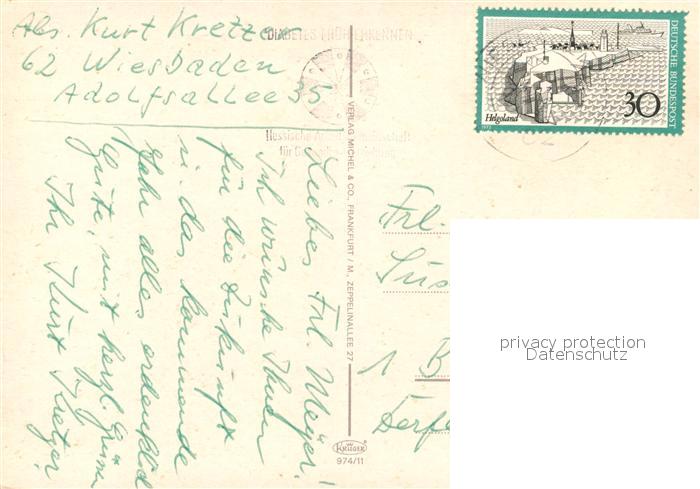 Abs. Kurt Kretzer
62 Wiesbaden
Adolfsallee 35
DIABETES FRÜHERKENNEN
Hessische
für
DEUTSCHE BUNDESPOST
Helgoland
30
62
VERLAG MICHEL & CO., FRANKFURT / M., ZEPPELINALLEE 27
Liebes Frl. Meyer!
Ich wünsche Ihnen
für die Zukunft
u. das kommende
Jahr alles erdenklich
Gute, mit herzl. Grüßen
Ihr Kurt Kretzer
Frl.
Sus
1 B
KRÜGER
974/11
privacy protection
Datenschutz